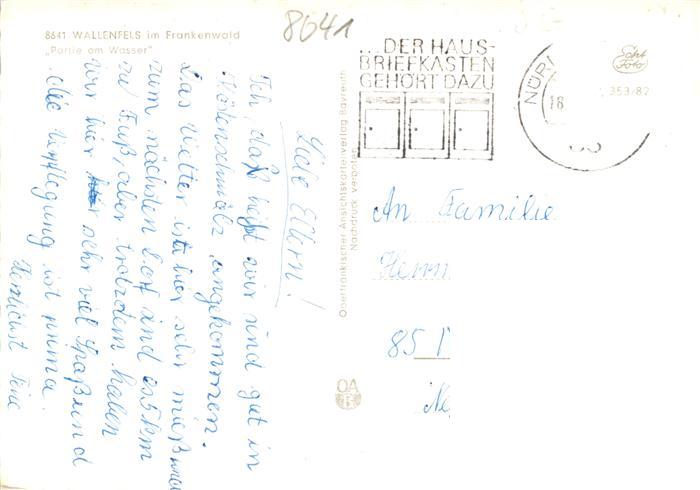 8641 WALLENFELS im Frankenwald
„Partie am Wasser"
8641
...DER HAUS-
BRIEFKASTEN
GEHÖRT DAZU
NÜR
18
Echt
Foto
353/82
Liebe Eltern!
Ich, daß heißt wir sind gut in
angekommen.
Das Wetter ist hier sehr mieß und
zum nächsten Dorf sind es 5 km
zu Fuß, aber trotzdem haben
wir hier sehr viel Spaß und
die Verpflegung ist prima.
Herzlichst Eure
Oberfränkischer Ansichtskartenverlag Bayreuth
Nachdruck verboten
OA
B
An Familie
Herrn
85